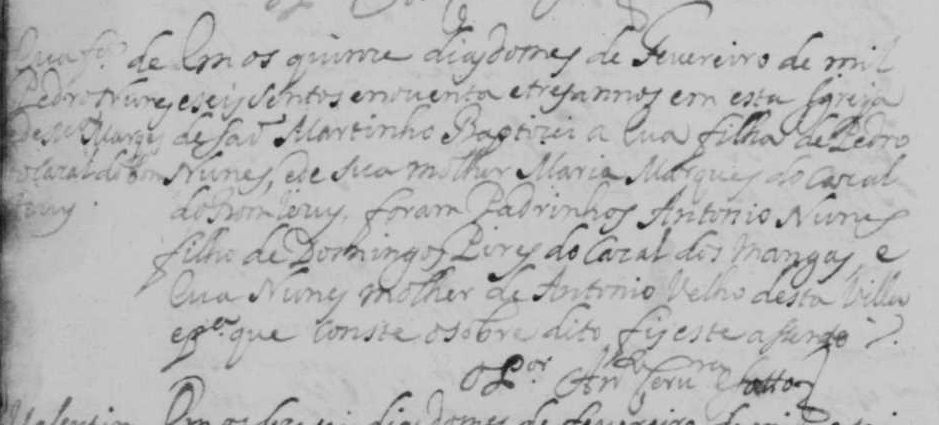 Eua fª de
Pedro Nunes
e de Mª Marqs
do Cazal do Bom
Jesus.
Em os quinze dias do mes de Fevereiro de mil
e seis sentos e noventa e tres annos em esta Igreja
de Saõ Martinho Baptizei a Eua filha de Pedro
Nunes, e de sua molher Maria Marques do Cazal
do Bom Jesus, foram Padrinhos Antonio Nunes
filho de Domingos Pires do Cazal dos Mangas, e
Eua Nunes molher de Antonio Velho desta Villa
e pª que conste o sobre dito fis este assento
O Por
Valentim
Em os dias do mes de fevereiro de